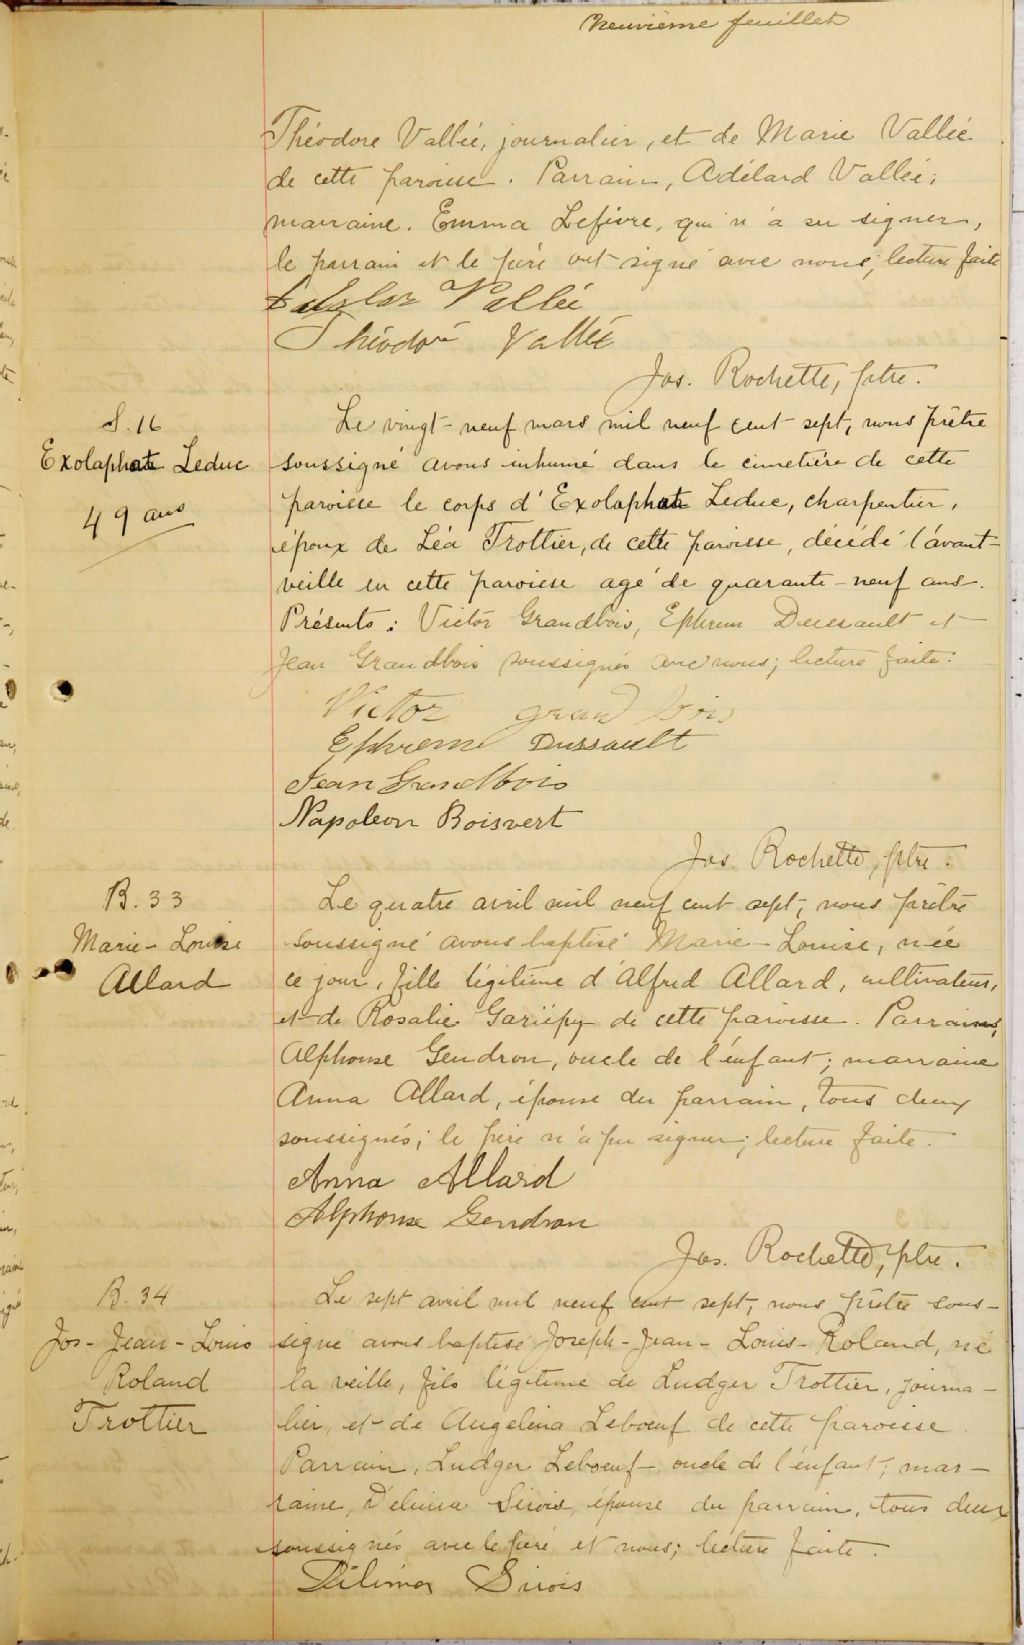 neuvième feuillet
Théodore Vallée, journalier, et de Marie Vallée
de cette paroisse. Parrain, Adélard Vallée;
marraine. Emma Lefèvre, qui n'a su signer,
le parrain et le père ont signé avec nous; lecture faite
Vallée
Théodore Vallée
Jos. Rochette, ptre.
S. 16
Exolaphate Leduc
49 ans
Le vingt-neuf mars mil neuf cent sept, nous prêtre
soussigné avons inhumé dans le cimetière de cette
paroisse le corps d'Exolaphate Leduc, charpentier,
époux de Léa Trottier, de cette paroisse, décédé l'avant-
veille en cette paroisse agé de quarante-neuf ans.
Présents: Victor Grandbois, Ephrem Dussault et
Jean Grandbois soussignés avec nous; lecture faite.
Victor grand bois
Ephrem Dussault
Jean Grandbois
Napoleon Boisvert
Jos. Rochette, ptre.
B. 33
Marie-Louise
Allard
Le quatre avril mil neuf cent sept, nous prêtre
soussigné avons baptisé Marie-Louise, née
ce jour, fille légitime d'Alfred Allard, cultivateur,
et de Rosalie Gariépy de cette paroisse. Parrain,
Alphonse Gendron, oncle de l'enfant; marraine
Anna Allard, épouse du parrain, tous deux
soussignés; le père n'a pu signer; lecture faite.
Anna Allard
Alphonse Gendron
Jos. Rochette, ptre.
B. 34
Jos-Jean-Louis
Roland
Trottier
Le sept avril mil neuf cent sept, nous prêtre sous-
signé avons baptisé Joseph-Jean-Louis-Roland, né
la veille, fils légitime de Ludger Trottier, journa-
lier, et de Angelina Lebœuf de cette paroisse.
Parrain, Ludger Lebœuf, oncle de l'enfant; mar-
raine, Délima Sirois, épouse du parrain, tous deux
soussignés avec le père et nous; lecture faite.
Délima Sirois